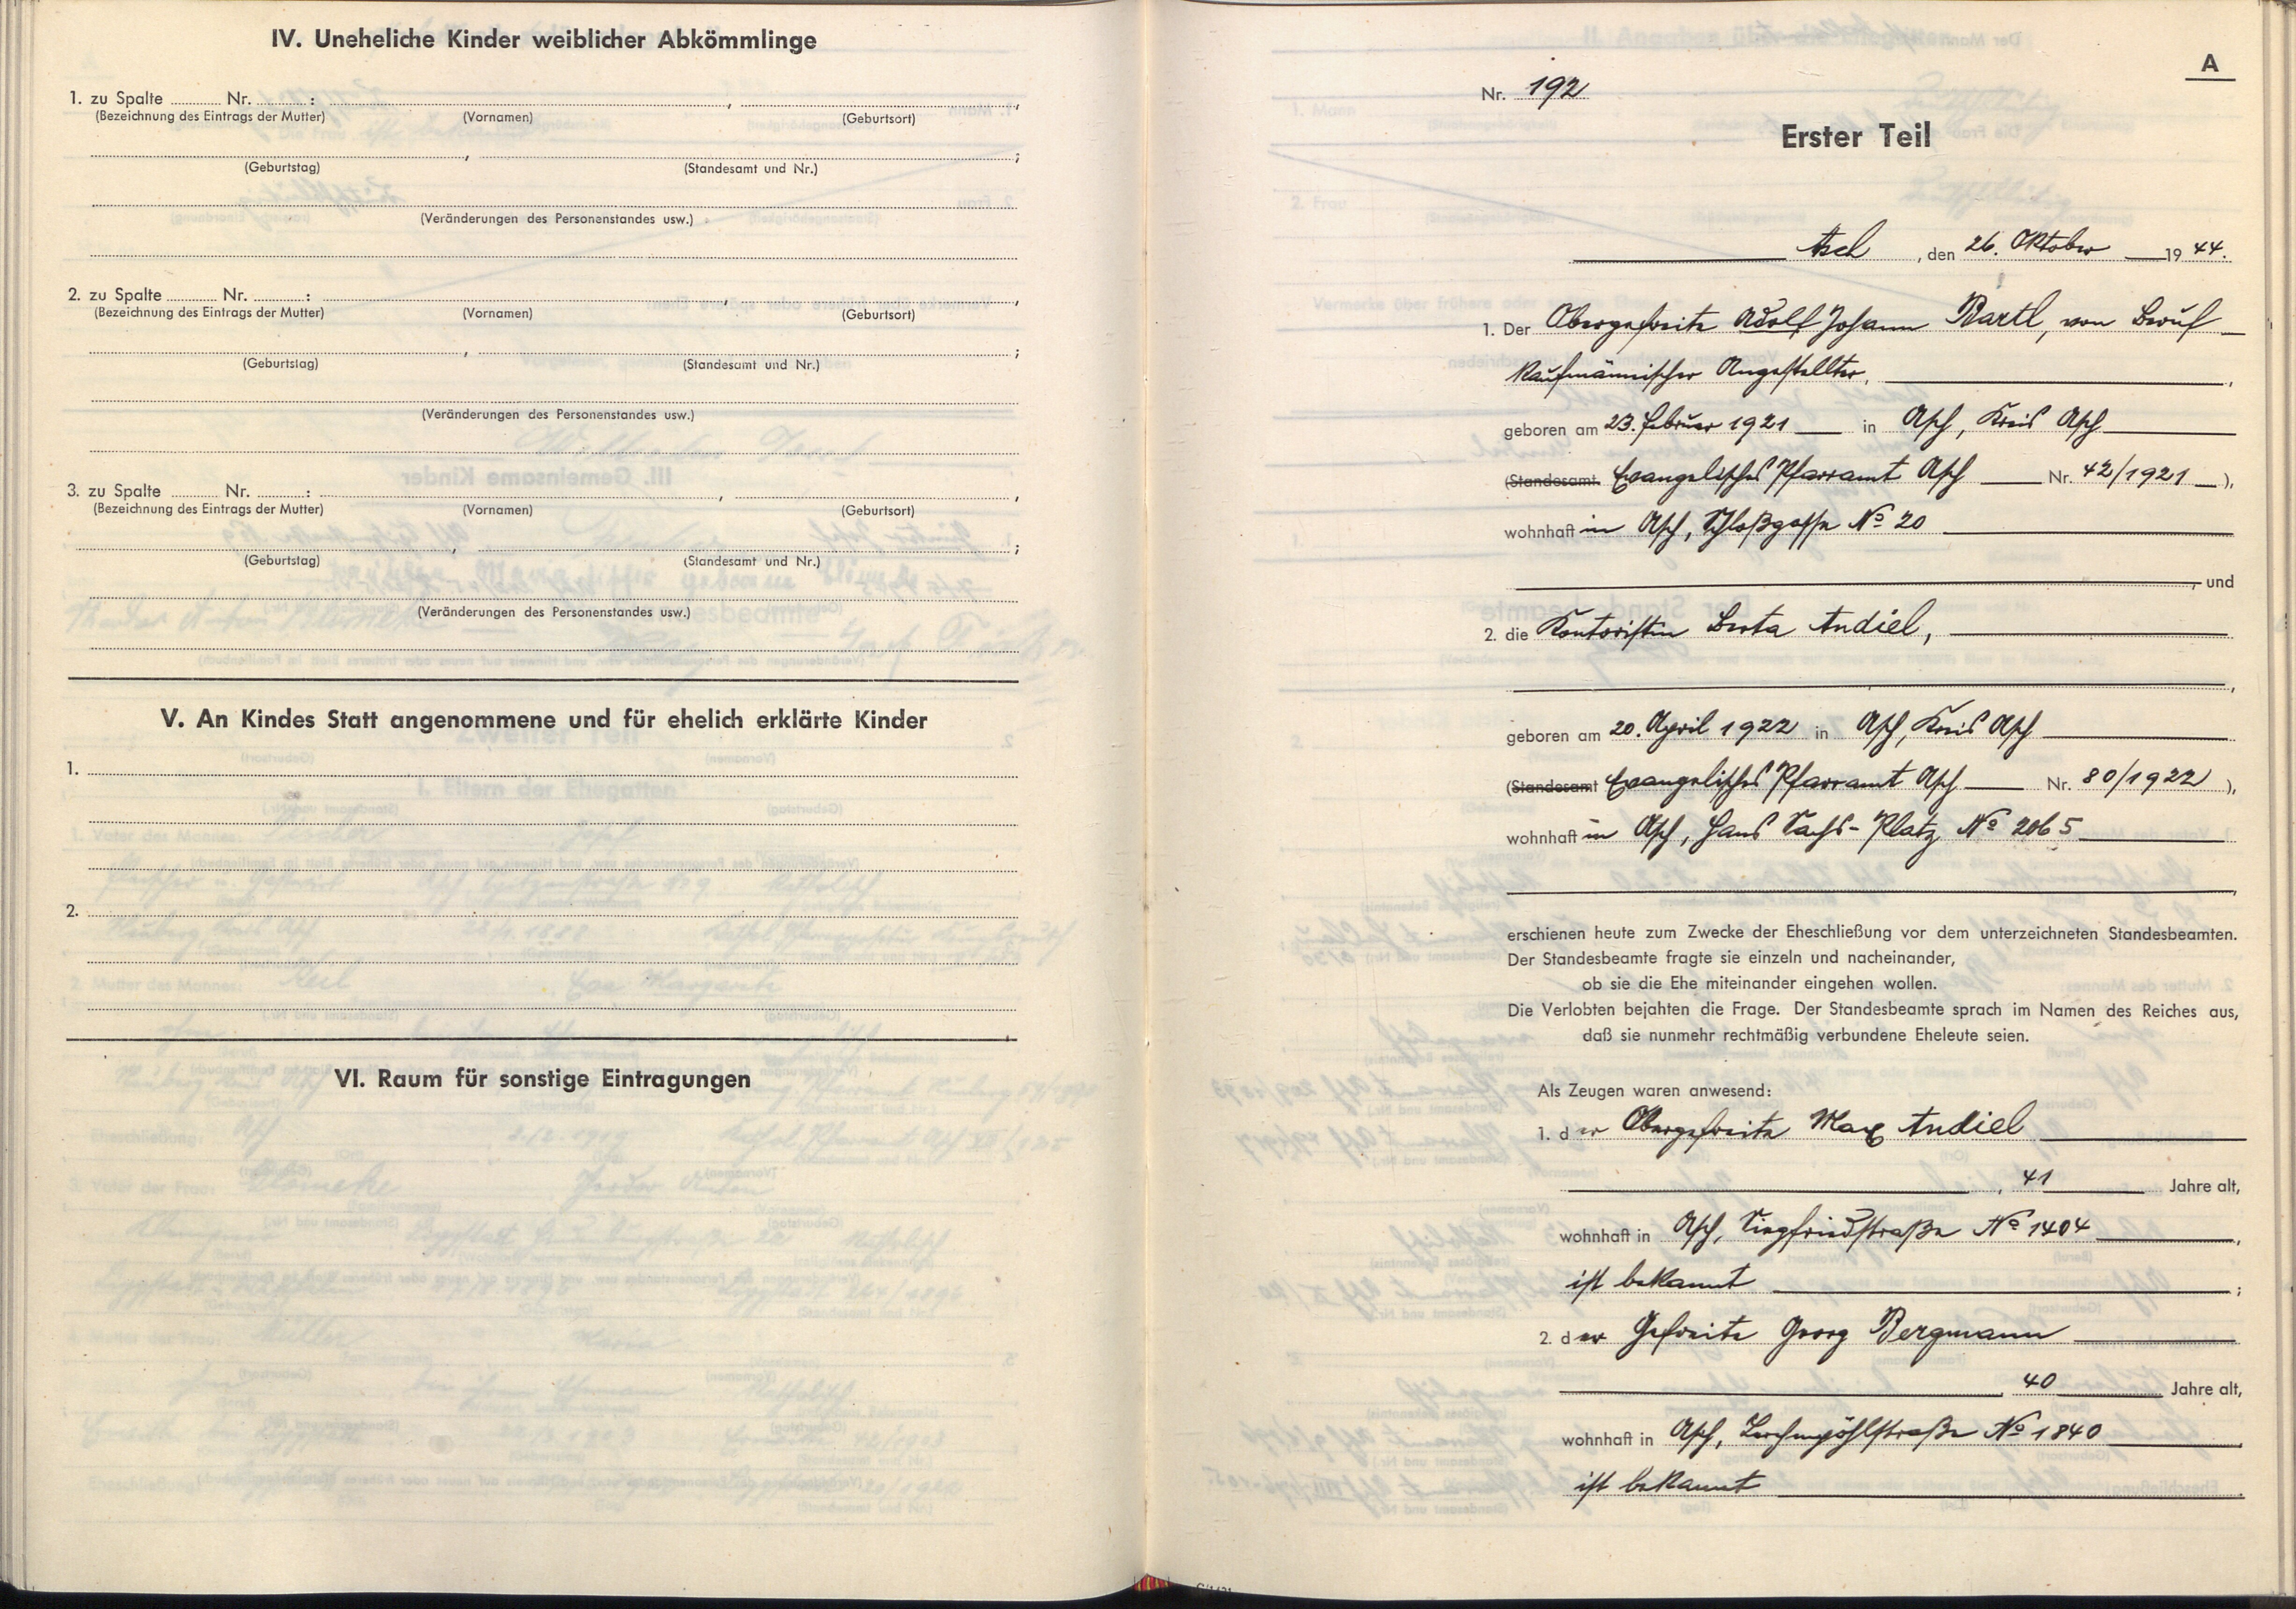 IV. Uneheliche Kinder weiblicher Abkömmlinge
1. zu Spalte ........ Nr. ........ :
(Bezeichnung des Eintrags der Mutter) (Vornamen) (Geburtsort)
(Geburtstag) (Standesamt und Nr.)
(Veränderungen des Personenstandes usw.)
2. zu Spalte ........ Nr. ........ :
(Bezeichnung des Eintrags der Mutter) (Vornamen) (Geburtsort)
(Geburtstag) (Standesamt und Nr.)
(Veränderungen des Personenstandes usw.)
3. zu Spalte ........ Nr. ........ :
(Bezeichnung des Eintrags der Mutter) (Vornamen) (Geburtsort)
(Geburtstag) (Standesamt und Nr.)
(Veränderungen des Personenstandes usw.)
V. An Kindes Statt angenommene und für ehelich erklärte Kinder
1.
2.
VI. Raum für sonstige Eintragungen
A
Nr. 192
Erster Teil
Asch, den 26. Oktober 1944.
1. Der Obergefreite Adolf Johann Bartl, von Beruf
kaufmännischer Angestellter,
geboren am 23. Februar 1921 in Asch, Kreis Asch
(Standesamt Evangelisches Pfarramt Asch Nr. 42/1921),
wohnhaft in Asch, Schloßgasse No 20
, und
2. die Kontoristin Berta Andiel,
,
geboren am 20. April 1922 in Asch, Kreis Asch
(Standesamt Evangelisches Pfarramt Asch Nr. 80/1922),
wohnhaft in Asch, Hans Sachs-Platz No 2065
erschienen heute zum Zwecke der Eheschließung vor dem unterzeichneten Standesbeamten.
Der Standesbeamte fragte sie einzeln und nacheinander,
ob sie die Ehe miteinander eingehen wollen.
Die Verlobten bejahten die Frage. Der Standesbeamte sprach im Namen des Reiches aus,
daß sie nunmehr rechtmäßig verbundene Eheleute seien.
Als Zeugen waren anwesend:
1. der Obergefreite Max Andiel
, 41 Jahre alt,
wohnhaft in Asch, Siegfriedstraße No 1404,
ist bekannt ;
2. der Gefreite Georg Bergmann
, 40 Jahre alt,
wohnhaft in Asch, Lerchenpöhlstraße No 1840
ist bekannt.